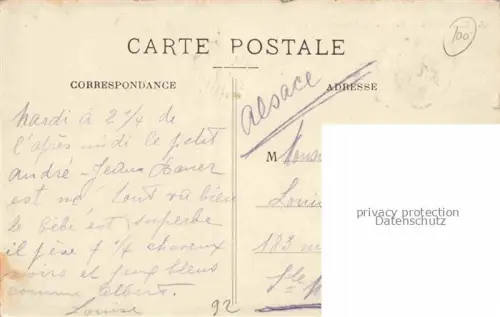 100
CARTE POSTALE
CORRESPONDANCE
Alsace
ADRESSE
Mardi à 2 1/4 de
l'après midi le petit
andré - Jean
est né tout va bien
le bébé est superbe
il pèse 7 1/4 cheveux
noirs et yeux bleus
comme albert.
Louise
92
M
Louis
183
Ste
privacy protection
Datenschutz